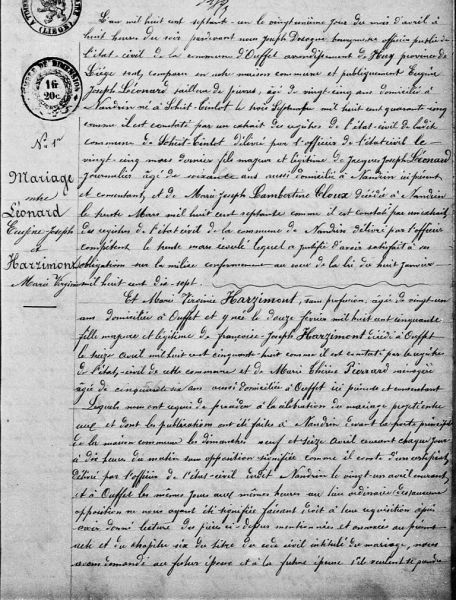 N.° 1er
Mariage
entre
Léonard
Eugène Joseph
et
Harzimont
Marie Virginie
L'an mil huit cent septante-un le vingt-neuvième jour du mois d'avril à
huit heures du soir pardevant nous Joseph bourgmestre officier public de
l'état-civil de la commune d'Ouffet arrondissement de Huy province de
Liége sont comparu en notre maison commune et publiquement Eugène
Joseph Léonard tailleur de pierres, âgé de vingt-cinq ans domicilié à
Nandrin né à Scheit-Tinlot le trois Septembre mil huit cent quarante cinq
comme il est constaté par un extrait des régistres de l'état-civil de ladite
commune de Scheit-Tinlot délivré par l'officier de l'état civil le
vingt-cinq mars dernier fils majeur et légitime de Jacques Joseph Léonard
journalier âgé de soixante ans aussi domicilié à Nandrin ici présent
et consentant, et de Marie Joseph Lambertine Cloux décédée à Nandrin
le trente Mars mil huit cent septante comme il est constaté par un extrait
des régistres de l'état-civil de la commune de Nandrin délivré par l'officier
compétent le trente mars écoulé lequel a justifié d'avoir satisfait à ses
obligations sur la milice conformément au vœu de la loi du huit Janvier
mil huit cent dix-sept.
Et Marie Virginie Harzimont, sans profession, âgée de vingt-un
ans domiciliée à Ouffet et y née le douze février mil huit cent cinquante
fille majeure et légitime de François-Joseph Harzimont décédé à Ouffet
le seize avril mil huit cent cinquante-huit comme il est constaté par les régistres
de l'état-civil de cette commune et de Marie Thérèse Pierrard ménagère
âgée de cinquante six ans aussi domiciliée à Ouffet ici présente et consentante
Lesquels nous ont requis de procéder à la célébration du mariage projeté entre
eux et dont les publications ont été faites à Nandrin devant la porte principale
de la maison commune les dimanches neuf et seize avril courant chaque jour
à dix heures du matin sans opposition signifiée comme il conste d'un certificat
délivré par l'officier de l'état-civil dudit Nandrin le vingt-un avril courant,
et à Ouffet les mêmes jours aux mêmes heures au lieu ordinaire
opposition ne nous ayant été signifiée faisant droit à leur réquisition après
avoir donné lecture des pièces ci-dessus mentionnées et au présent
acte et du chapitre six du titre du code civil intitulé du mariage, nous
avons demandé au futur époux et à la future épouse s'ils veulent se prendre